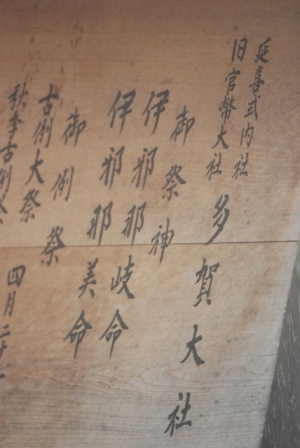 延喜式内社
旧官幣大社
多賀大社
御祭神
伊邪那岐命
伊邪那美命
御例祭
古例大祭
四月二十
秋季古例祭